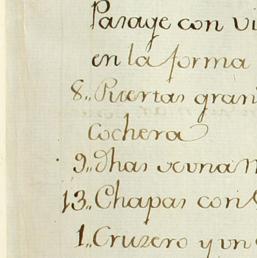 Parage con vi
en la forma
8,, Puertas gran
Cochera
9,, dhas de una
13,, Chapas con
1,, Cruzero y un